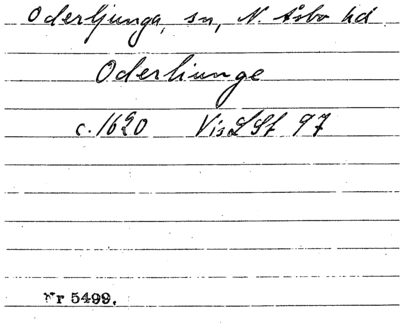 Oderljunga, sn, N. Åsbo hd
Oderliunge
c. 1620 VisLSt 97
Nr 5499.